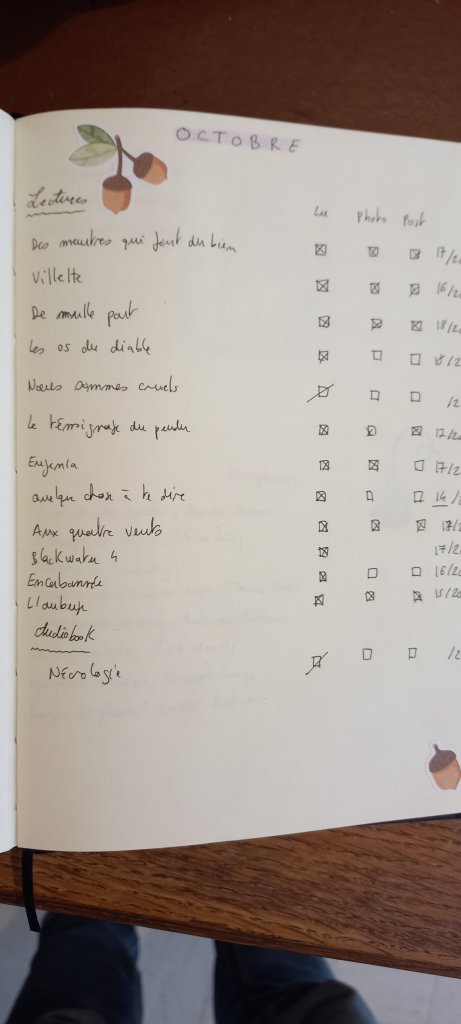 OCTOBRE
Lectures Lu Photo Post
Des meurtres qui font du bien 17/20
Villette 16/20
De nulle part 18/20
Les os du diable 18/2
Nous sommes cruels /2
Le témoignage du pendu 17/20
Eugenia 17/20
Quelque chose à te dire 14/
Aux quatre vents 17/20
Blackwater 4 17/20
Encabanée 16/20
L'auberge 15/20
Audiobook
Nécrologie /2